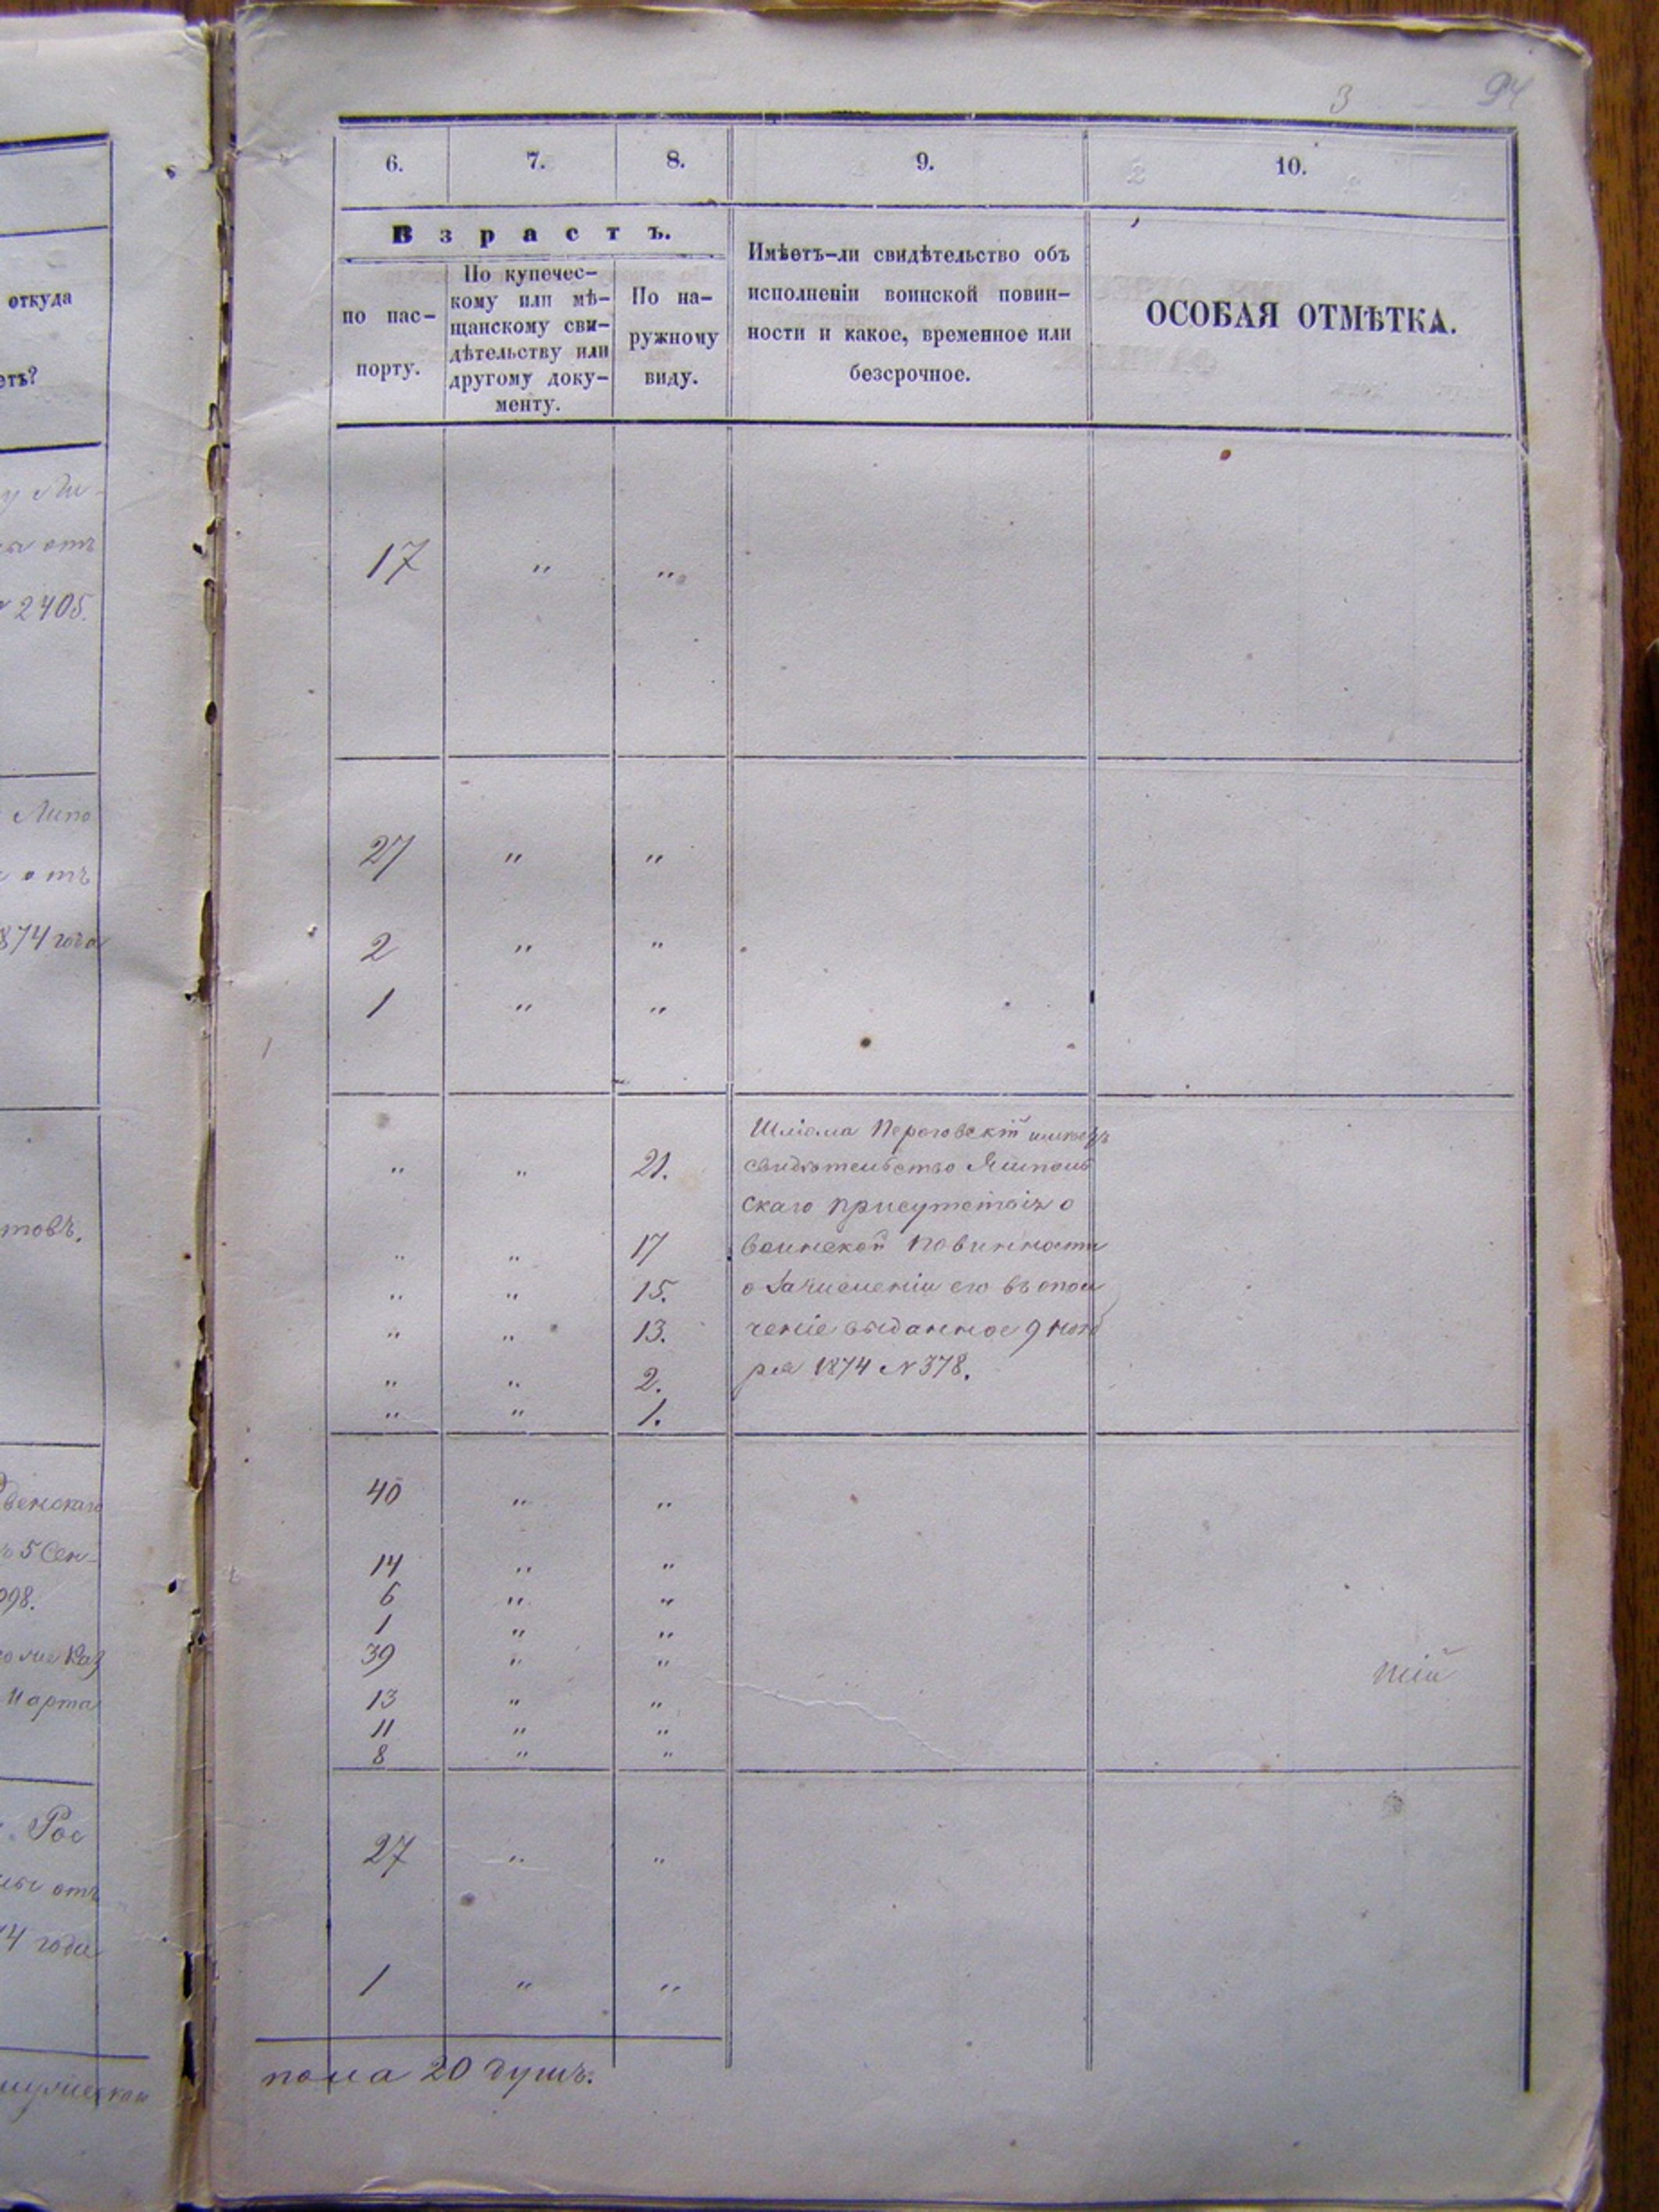 3 94
откуда
етъ?
отъ
2405.
Липо
отъ
874 года
товъ.
5 Сен-
998.
Марта
Рос
отъ
4 года
6. 7. 8. 9. 10.
Возрастъ.
по пас-
порту.
По купечес-
кому или мѣ-
щанскому сви-
дѣтельству или
другому доку-
менту.
По на-
ружному
виду.
Имѣетъ-ли свидѣтельство объ
исполненіи воинской повин-
ности и какое, временное или
безсрочное.
ОСОБАЯ ОТМѢТКА.
17 " "
27 " "
2 " "
1 " "
" " 21.
" " 17
" " 15.
" " 13.
" " 2.
" " 1.
Шліома имѣетъ
свидѣтельство
скаго присутствія о
воинской повинности
о зачисленіи его въ опол
ченіе выданное 9 нояб
ря 1874 № 378.
40 " "
14 " "
6 " "
1 " "
39 " "
13 " "
11 " "
8 " "
27 " "
1 " "
пола 20 душъ.